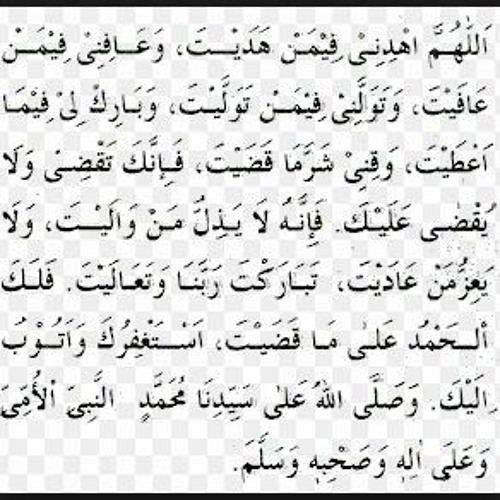 اَللّٰهُمَّ اهْدِنِىْ فِيْمَنْ هَدَيْــتَ، وَعَــافِنِىْ فِيْمَــنْ
عَافَيْتَ، وَتَوَلَّنِىْ فِيْمَـنْ تَوَلَّيْـتَ، وَبَارِكْ لِىْ فِيْمَـا
اَعْطَيْتَ، وَقِنِىْ شَرَّمَا قَضَيْتَ، فَـاِنَّكَ تَقْضِـىْ وَلَا
يُقْضٰـى عَلَيْـكَ. فَاِنَّـهُ لَا يَـذِلُّ مَـنْ وَالَيْــتَ، وَلَا
يَعِزُّمَنْ عَادَيْتَ، تَبَـارَكْتَ رَبَّنَـا وَتَعَـالَيْتَ. فَلَـكَ
الْــحَمْدُ عَلـٰى مَـا قَضَيْـتَ، اَسْــتَغْفِرُكَ وَاَتُــوْبُ
اِلَيْكَ. وَصَلَّى اللهُ عَلىٰ سَيِّدِنَا مُحَمَّدٍ النَّبِىِّ الْأُمِّىِّ
وَعَلَى اٰلِهِ وَصَحْبِهِ وَسَلَّمَ.